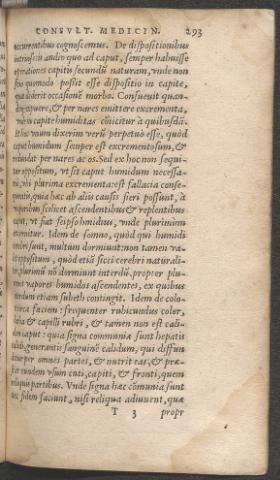 CONSVLT. MEDICIN. 293
occurrentibus cognoscemus. De dispositionibus
audio quod ad caput, semper habuisse
capitis secundũ naturam, vnde non
quomodo possit esse dispositio in capite,
dederit occasionẽ morbo. Consueuit quan-
& per nares emittere excrementa,
in capite humiditas cõijcitur à quibusdã.
hoc vnum dixerim verũ perpetuò esse, quòd
caput humidum semper est excrementosum, &
per nares ac os. Sed ex hoc non sequi-
oppositum, vt sit caput humidum necessa-
vbi plurima excrementa: est fallacia conse-
quia hæc ab alijs causis fieri possunt, à
vaporibus scilicet ascendentibus & replentibus
vt sunt hypochondrijs, vnde plurimùm
Idem de somno, quòd qui humidi
sunt, multum dormiunt: non tamen va-
oppositum, quòd etiã sicci cerebri naturali-
plurimũ nõ dormiunt interdũ, propter plu-
vapores humidos ascendentes, ex quibus
etiam subeth contingit. Idem de colo-
circa faciem: frequenter rubicundus color,
& capilli rubri, & tamen non est cali-
caput: quia signa communia sunt hepatis
generantis sanguinẽ calidum, qui diffun
per omnes partes, & nutrit eas, & præ-
eundem vsum cuti, capiti, & fronti, quem
reliquis partibus. Vnde signa hæc cõmunia sunt
fidem faciunt, nisi reliqua adiuuent, quæ
T 3 propr